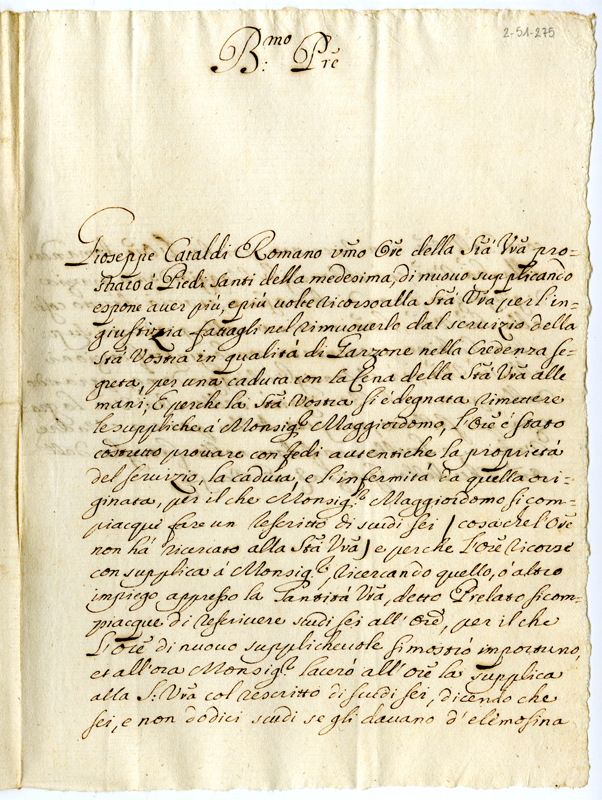 2-51-275
B:mo Pre
Gioseppe Cataldi Romano vmo Ore della Stà Vra pro=
strato à Piedi Santi della medesima, di nuovo supplicando
espone aver più, e più volte ricorso alla Stà Vra per l'in=
giustizia fattagli nel rimuoverlo dal servizio della
Stà Vostra in qualità di Garzone nella Credenza se=
greta, per una caduta con la Cena della Stà Vra alle
mani; E perche la Stà Vostra si è degnata rimettere
le suppliche à Monsigr Maggiordomo, l'Ore è stato
costretto provare con fedi autentiche la proprietà
del servizio, la caduta, e l'infermità da quella ori=
ginata, per il che Monsigr Maggiordomo si com=
piacquè fare un Rescritto di scudi sei / cosa che l'Ore
non hà ricercato alla Stà Vra / e perche l'Ore ricorse
con supplica à Monsigr, ricercando quello, ò altro
impiego appresso la Santità Vrà, detto Prelato si com=
piacque di rescrivere scudi sei all'Ore, per il che
l'Ore di nuovo supplichevole si mostrò importuno,
et all'ora Monsigr lacerò all'Ore la supplica
alla S: Vra col rescritto di scudi sei, dicendo che
sei, e non dodici scudi se gli davano d'elemosina